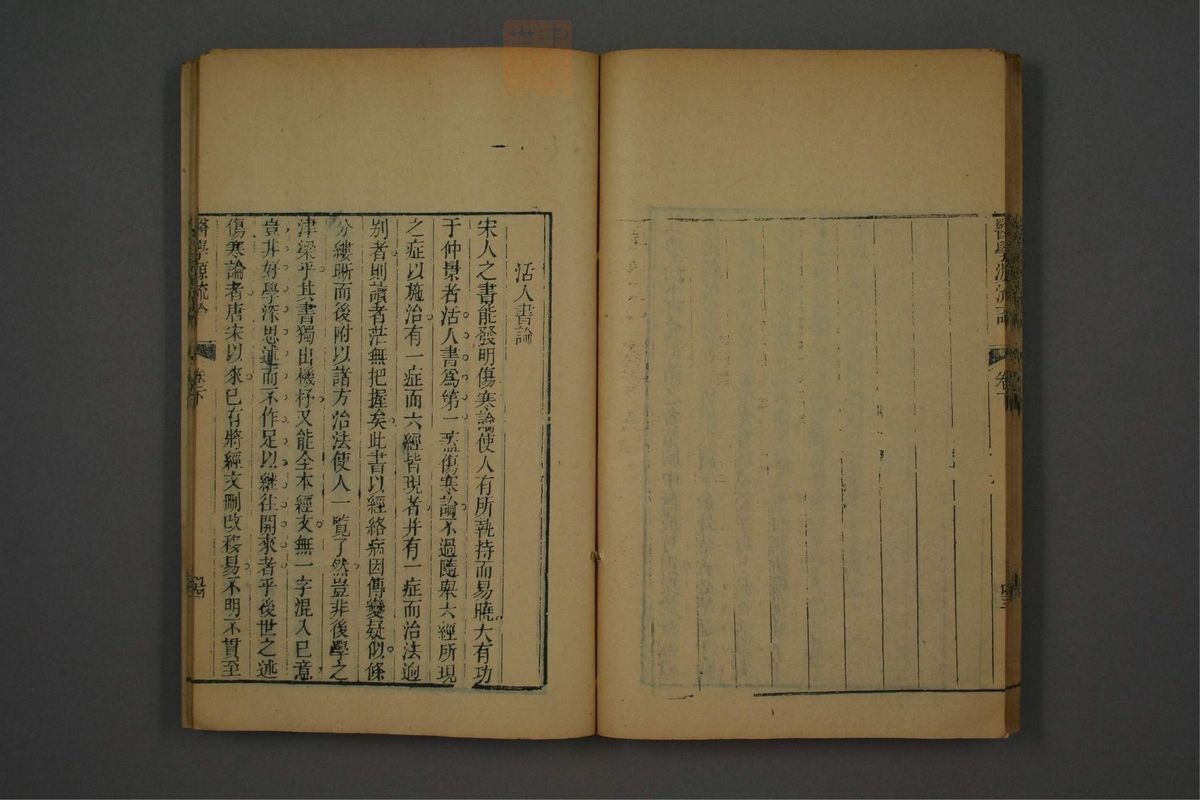 醫學源流論
卷下
活人書論
宋人之書能發明傷寒論使人有所執持而易曉大有功
于仲景者活人書爲第一蓋傷寒論不過隨舉六經所現
之症以施治有一症而六經皆現者并有一症而治法逈
别者則讀者茫無把握矣此書以經絡病因傳變疑似條
分縷晣而後附以諸方治法使人一覧了然豈非後學之
津梁乎其書獨出機杼又能全本經文無一字混入已意
豈非好學深思述而不作足以繼往開來者乎後世之述
傷寒論者唐宋以來已有將經文刪改移易不明不貫至
醫學源流論
卷下